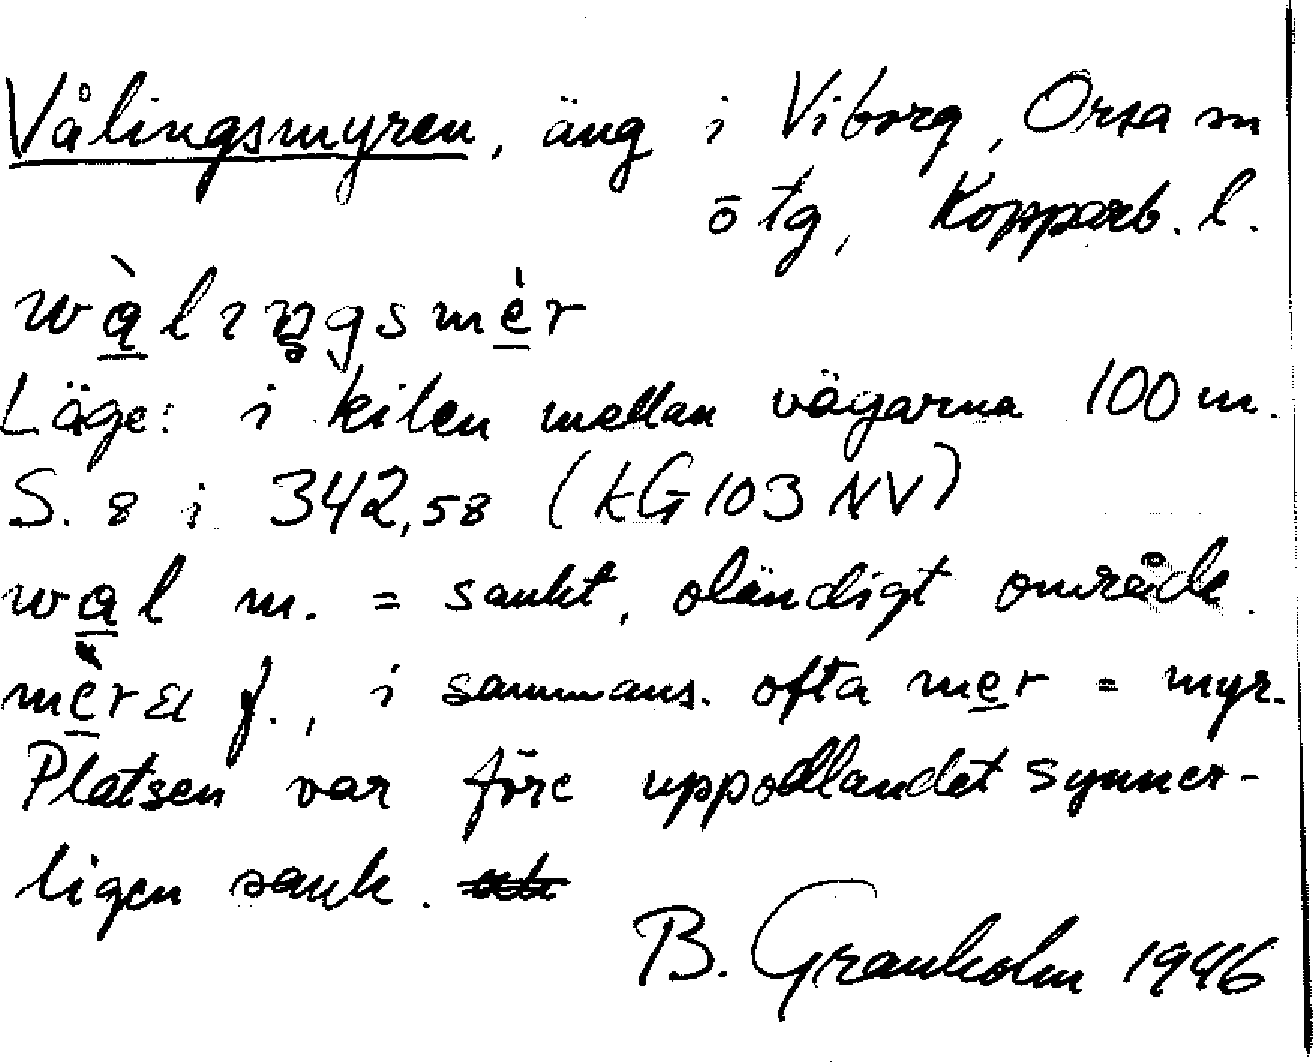 Vålingsmyren, äng i Viborg, Orsa sn
ö tg, Kopparb. l.
wà̲lıŋgsmè̲r
Läge: i kilen mellan vägarna 100 m.
S. 8 i 342,58 (kG 103 NV)
wa̲l m. = sankt, oländigt område.
mè̲ra f., i sammans. ofta me̲r = myr.
Platsen var före uppodlandet synner-
ligen sank.
B. Granholm 1946